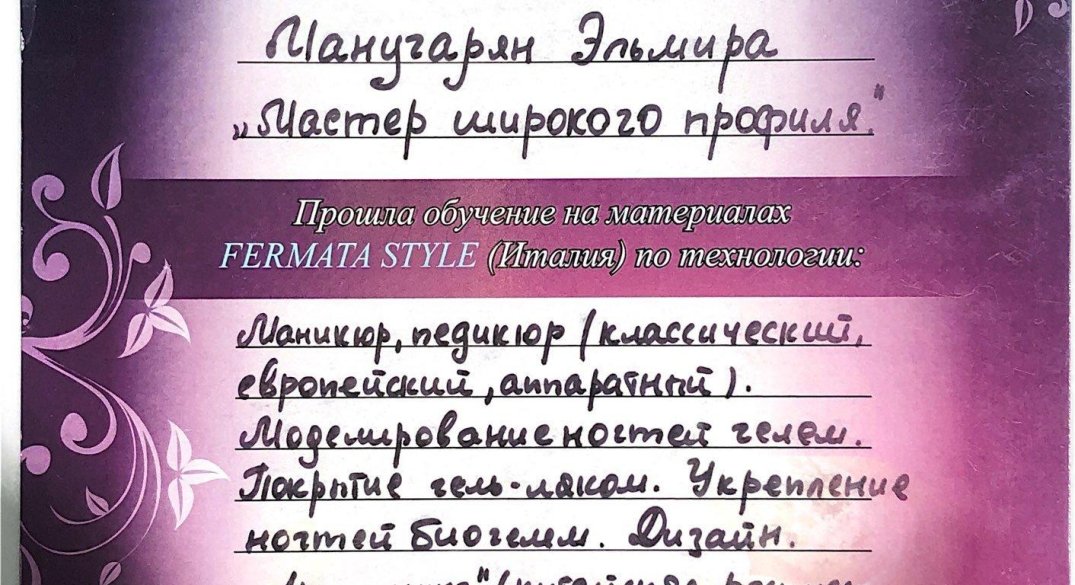 Манугарян Эльмира
„Мастер широкого профиля."
Прошла обучение на материалах
FERMATA STYLE (Италия) по технологии:
Маникюр, педикюр (классический,
европейский, аппаратный).
Моделирование ногтей гелем.
Покрытие гель-лаком. Укрепление
ногтей биогелем. Дизайн.